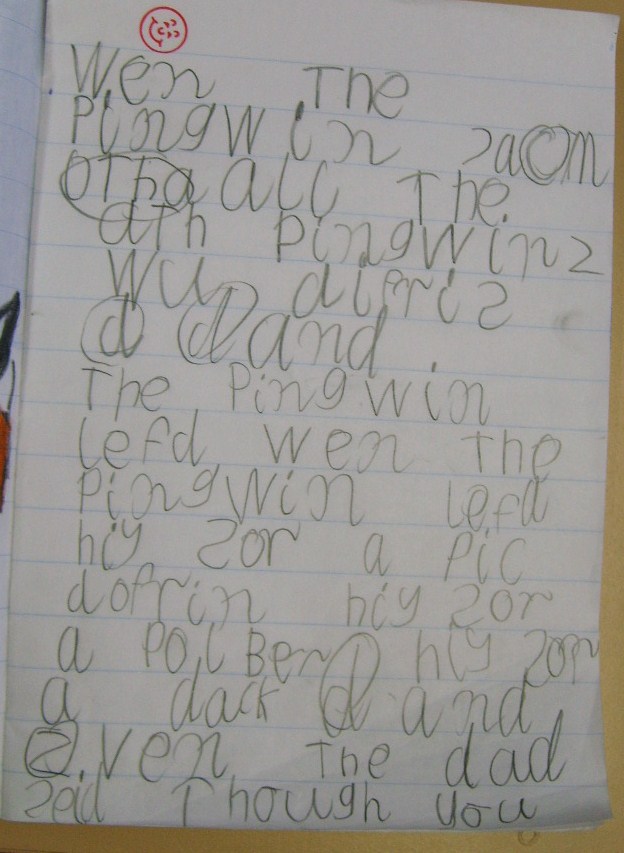 Wen The
Pingwin saom
otha all The.
ath pingwinz
wu difriz
d d and
The Pingwin
lefd wen the
Pingwin lefd
hiy sor a pic
dofrin hiy sor
a Poll Ber hiy sor
a dack d and
z.ven the dad
sed Though you